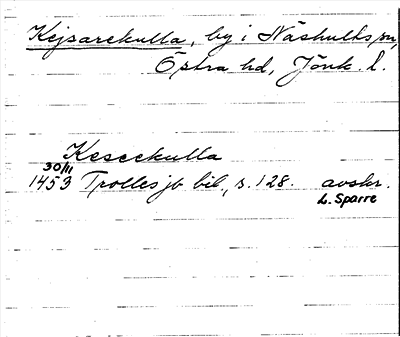 Kejsarekulla, by i Näshults sn,
Östra hd, Jönk. l.
Keseekulla
30/11
1453 Trolles jb bil., s. 128. avskr.
L. Sparre